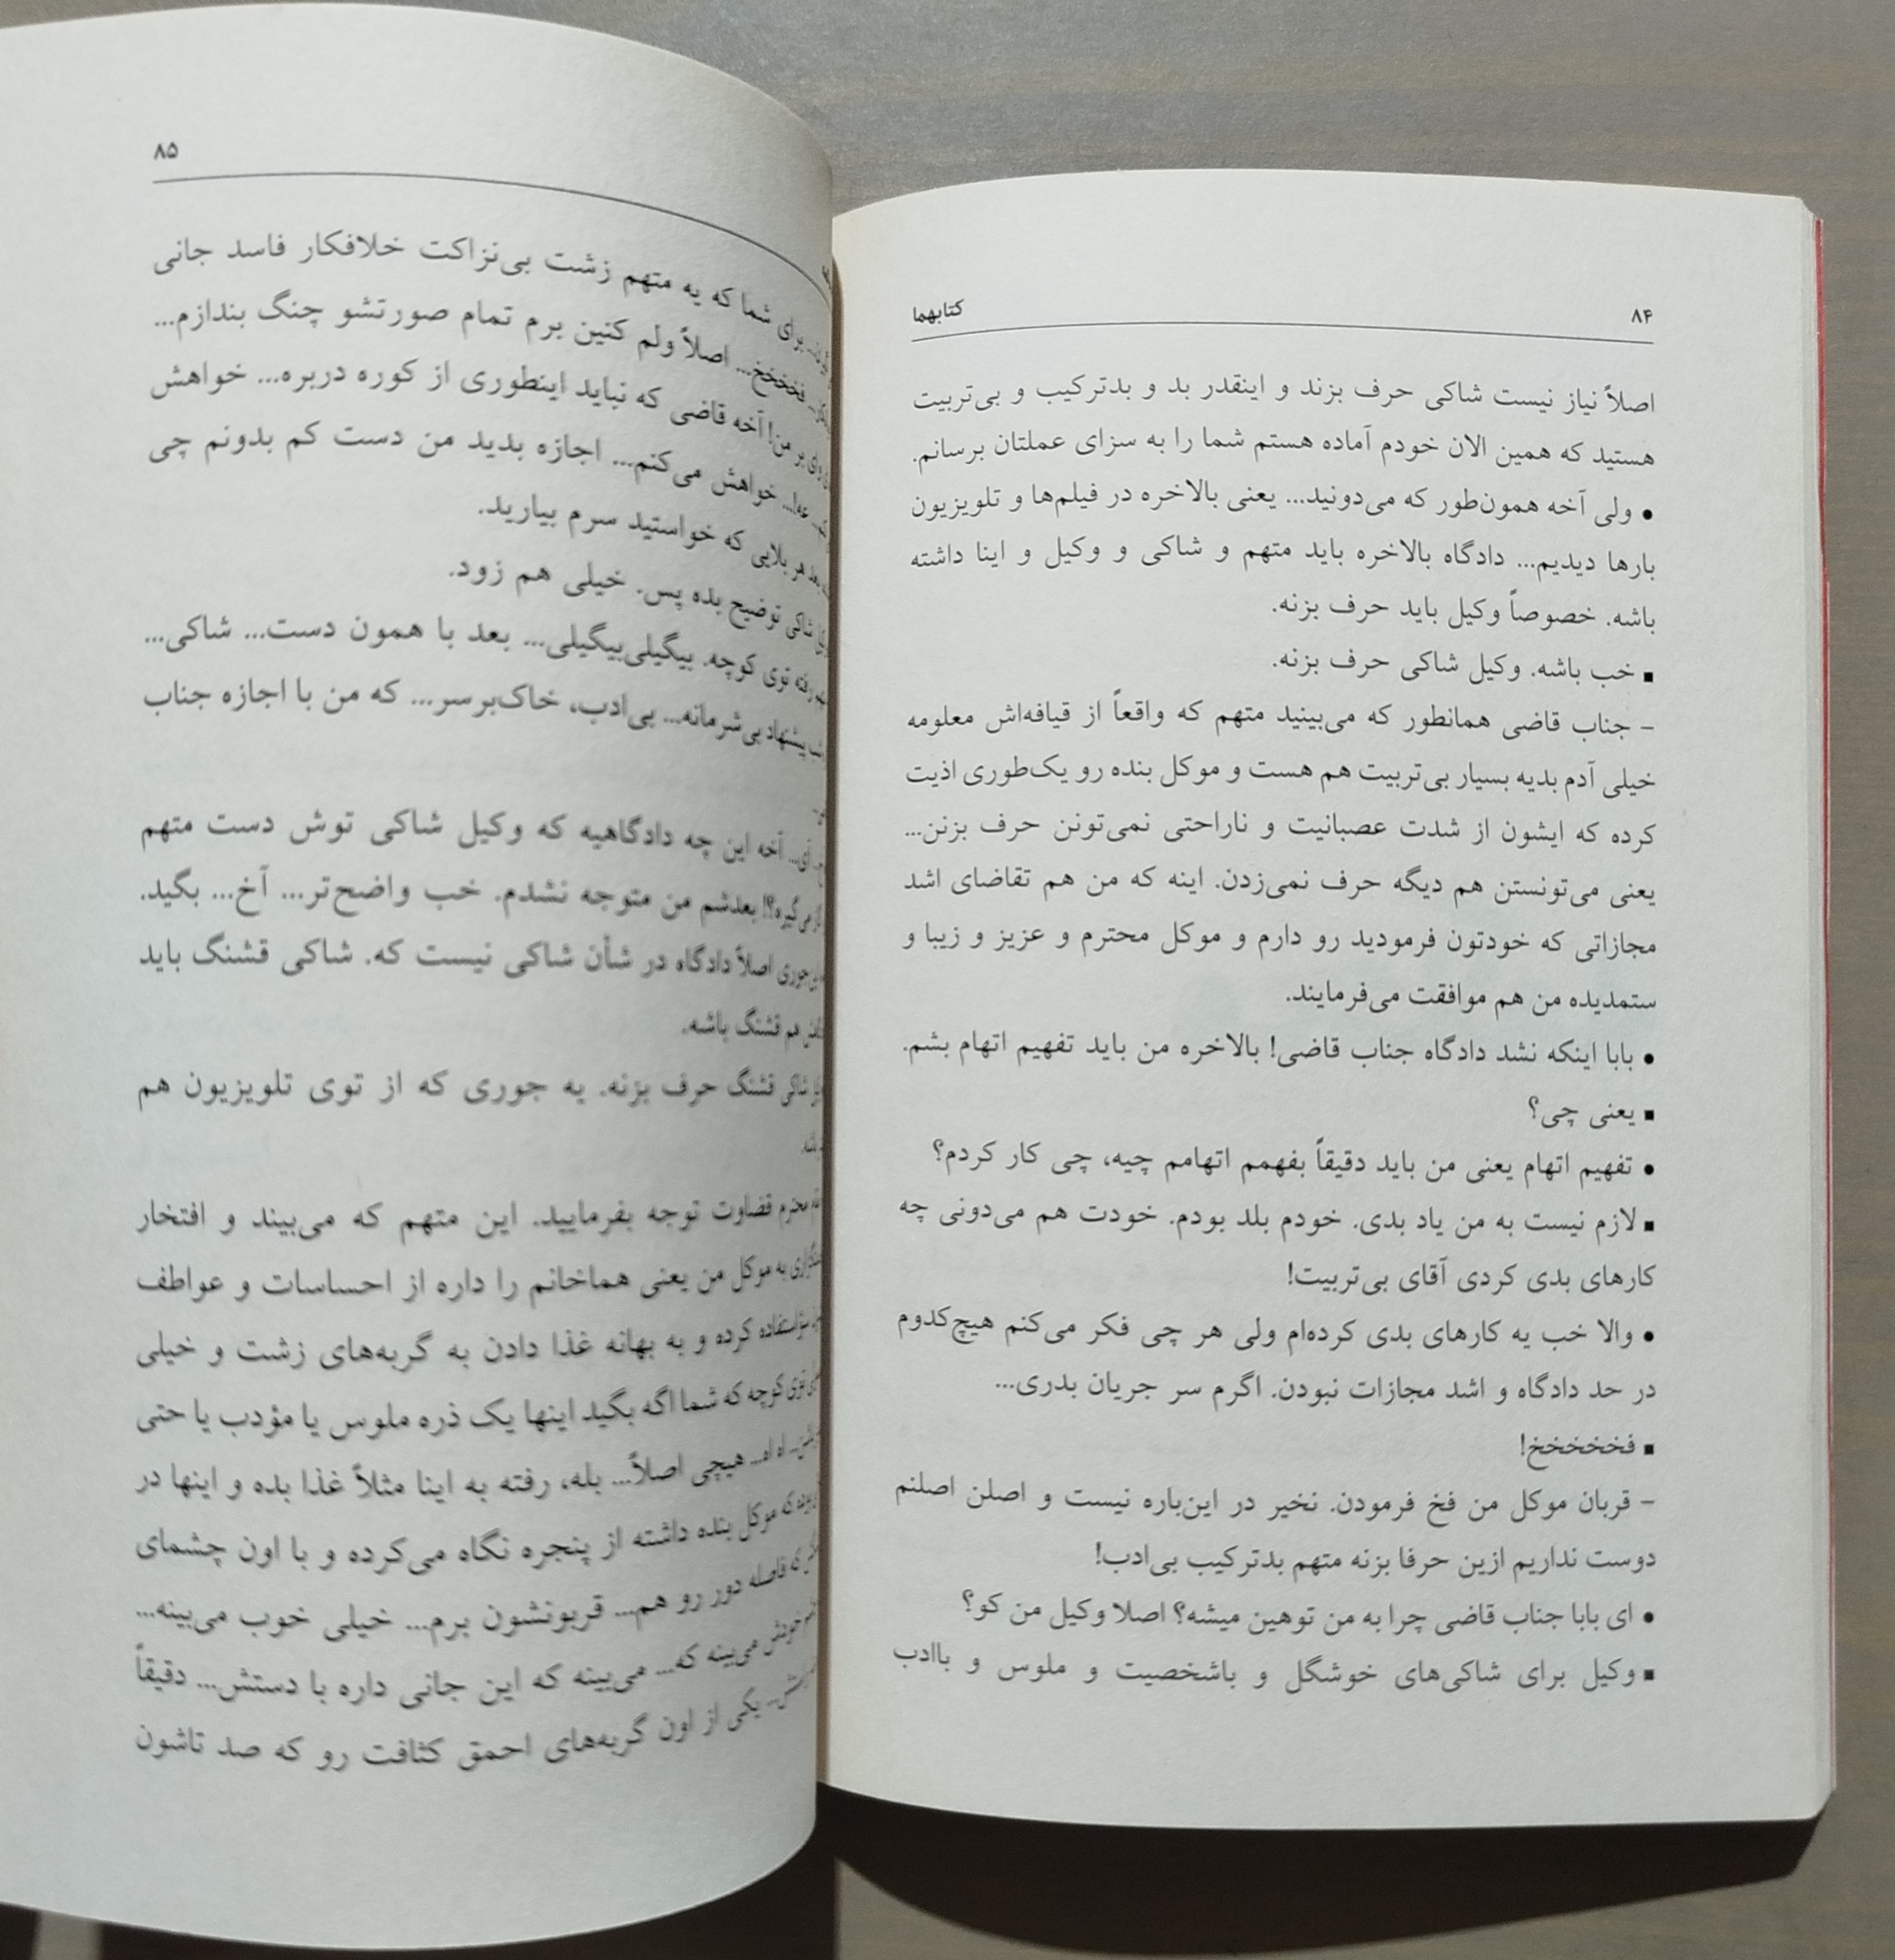 ۸۴
کتابهما
اصلاً نیاز نیست شاکی حرف بزند و اینقدر بد و بدترکیب و بی‌تربیت
هستید که همین الان خودم آماده هستم شما را به سزای عملتان برسانم.
• ولی آخه همون‌طور که می‌دونید... یعنی بالاخره در فیلم‌ها و تلویزیون
بارها دیدیم... دادگاه بالاخره باید متهم و شاکی و وکیل و اینا داشته
باشه. خصوصاً وکیل باید حرف بزنه.
▪ خب باشه. وکیل شاکی حرف بزنه.
– جناب قاضی همانطور که می‌بینید متهم که واقعاً از قیافه‌اش معلومه
خیلی آدم بدیه بسیار بی‌تربیت هم هست و موکل بنده رو یک‌طوری اذیت
کرده که ایشون از شدت عصبانیت و ناراحتی نمی‌تونن حرف بزنن...
یعنی می‌تونستن هم دیگه حرف نمی‌زدن. اینه که من هم تقاضای اشد
مجازاتی که خودتون فرمودید رو دارم و موکل محترم و عزیز و زیبا و
ستمدیده من هم موافقت می‌فرمایند.
• بابا اینکه نشد دادگاه جناب قاضی! بالاخره من باید تفهیم اتهام بشم.
▪ یعنی چی؟
• تفهیم اتهام یعنی من باید دقیقاً بفهمم اتهامم چیه، چی کار کردم؟
▪ لازم نیست به من یاد بدی. خودم بلد بودم. خودت هم می‌دونی چه
کارهای بدی کردی آقای بی‌تربیت!
• والا خب یه کارهای بدی کرده‌ام ولی هر چی فکر می‌کنم هیچ‌کدوم
در حد دادگاه و اشد مجازات نبودن. اگرم سر جریان بدری...
▪ فخخخخخ!
– قربان موکل من فخ فرمودن. نخیر در این‌باره نیست و اصلن اصلنم
دوست نداریم ازین حرفا بزنه متهم بدترکیب بی‌ادب!
• ای بابا جناب قاضی چرا به من توهین میشه؟ اصلا وکیل من کو؟
▪ وکیل برای شاکی‌های خوشگل و باشخصیت و ملوس و باادب
۸۵
برای شما که یه متهم زشت بی‌نزاکت خلافکار فاسد جانی
فخخخخ... اصلاً ولم کنین برم تمام صورتشو چنگ بندازم...
وای بر من! آخه قاضی که نباید اینطوری از کوره دربره... خواهش
عه!... خواهش می‌کنم... اجازه بدید من دست کم بدونم چی
بعد هر بلایی که خواستید سرم بیارید.
شاکی توضیح بده پس. خیلی هم زود.
رفته توی کوچه. بیگیلی‌بیگیلی... بعد با همون دست... شاکی...
پیشنهاد بی‌شرمانه... بی‌ادب، خاک‌برسر... که من با اجازه جناب
آی... آخه این چه دادگاهیه که وکیل شاکی توش دست متهم
می‌گیره؟! بعدشم من متوجه نشدم. خب واضح‌تر... آخ... بگید.
اصلاً دادگاه در شأن شاکی نیست که. شاکی قشنگ باید
هم قشنگ باشه.
شاکی قشنگ حرف بزنه. یه جوری که از توی تلویزیون هم
محترم قضاوت توجه بفرمایید. این متهم که می‌بیند و افتخار
به موکل من یعنی هماخانم را داره از احساسات و عواطف
سؤاستفاده کرده و به بهانه غذا دادن به گربه‌های زشت و خیلی
توی کوچه که شما اگه بگید اینها یک ذره ملوس یا مؤدب یا حتی
اه اه... هیچی اصلاً... بله، رفته به اینا مثلاً غذا بده و اینها در
که موکل بنده داشته از پنجره نگاه می‌کرده و با اون چشمای
فاصله دور رو هم... قربونشون برم... خیلی خوب می‌بینه...
خودش می‌بینه که... می‌بینه که این جانی داره با دستش... دقیقاً
یکی از اون گربه‌های احمق کثافت رو که صد تاشون